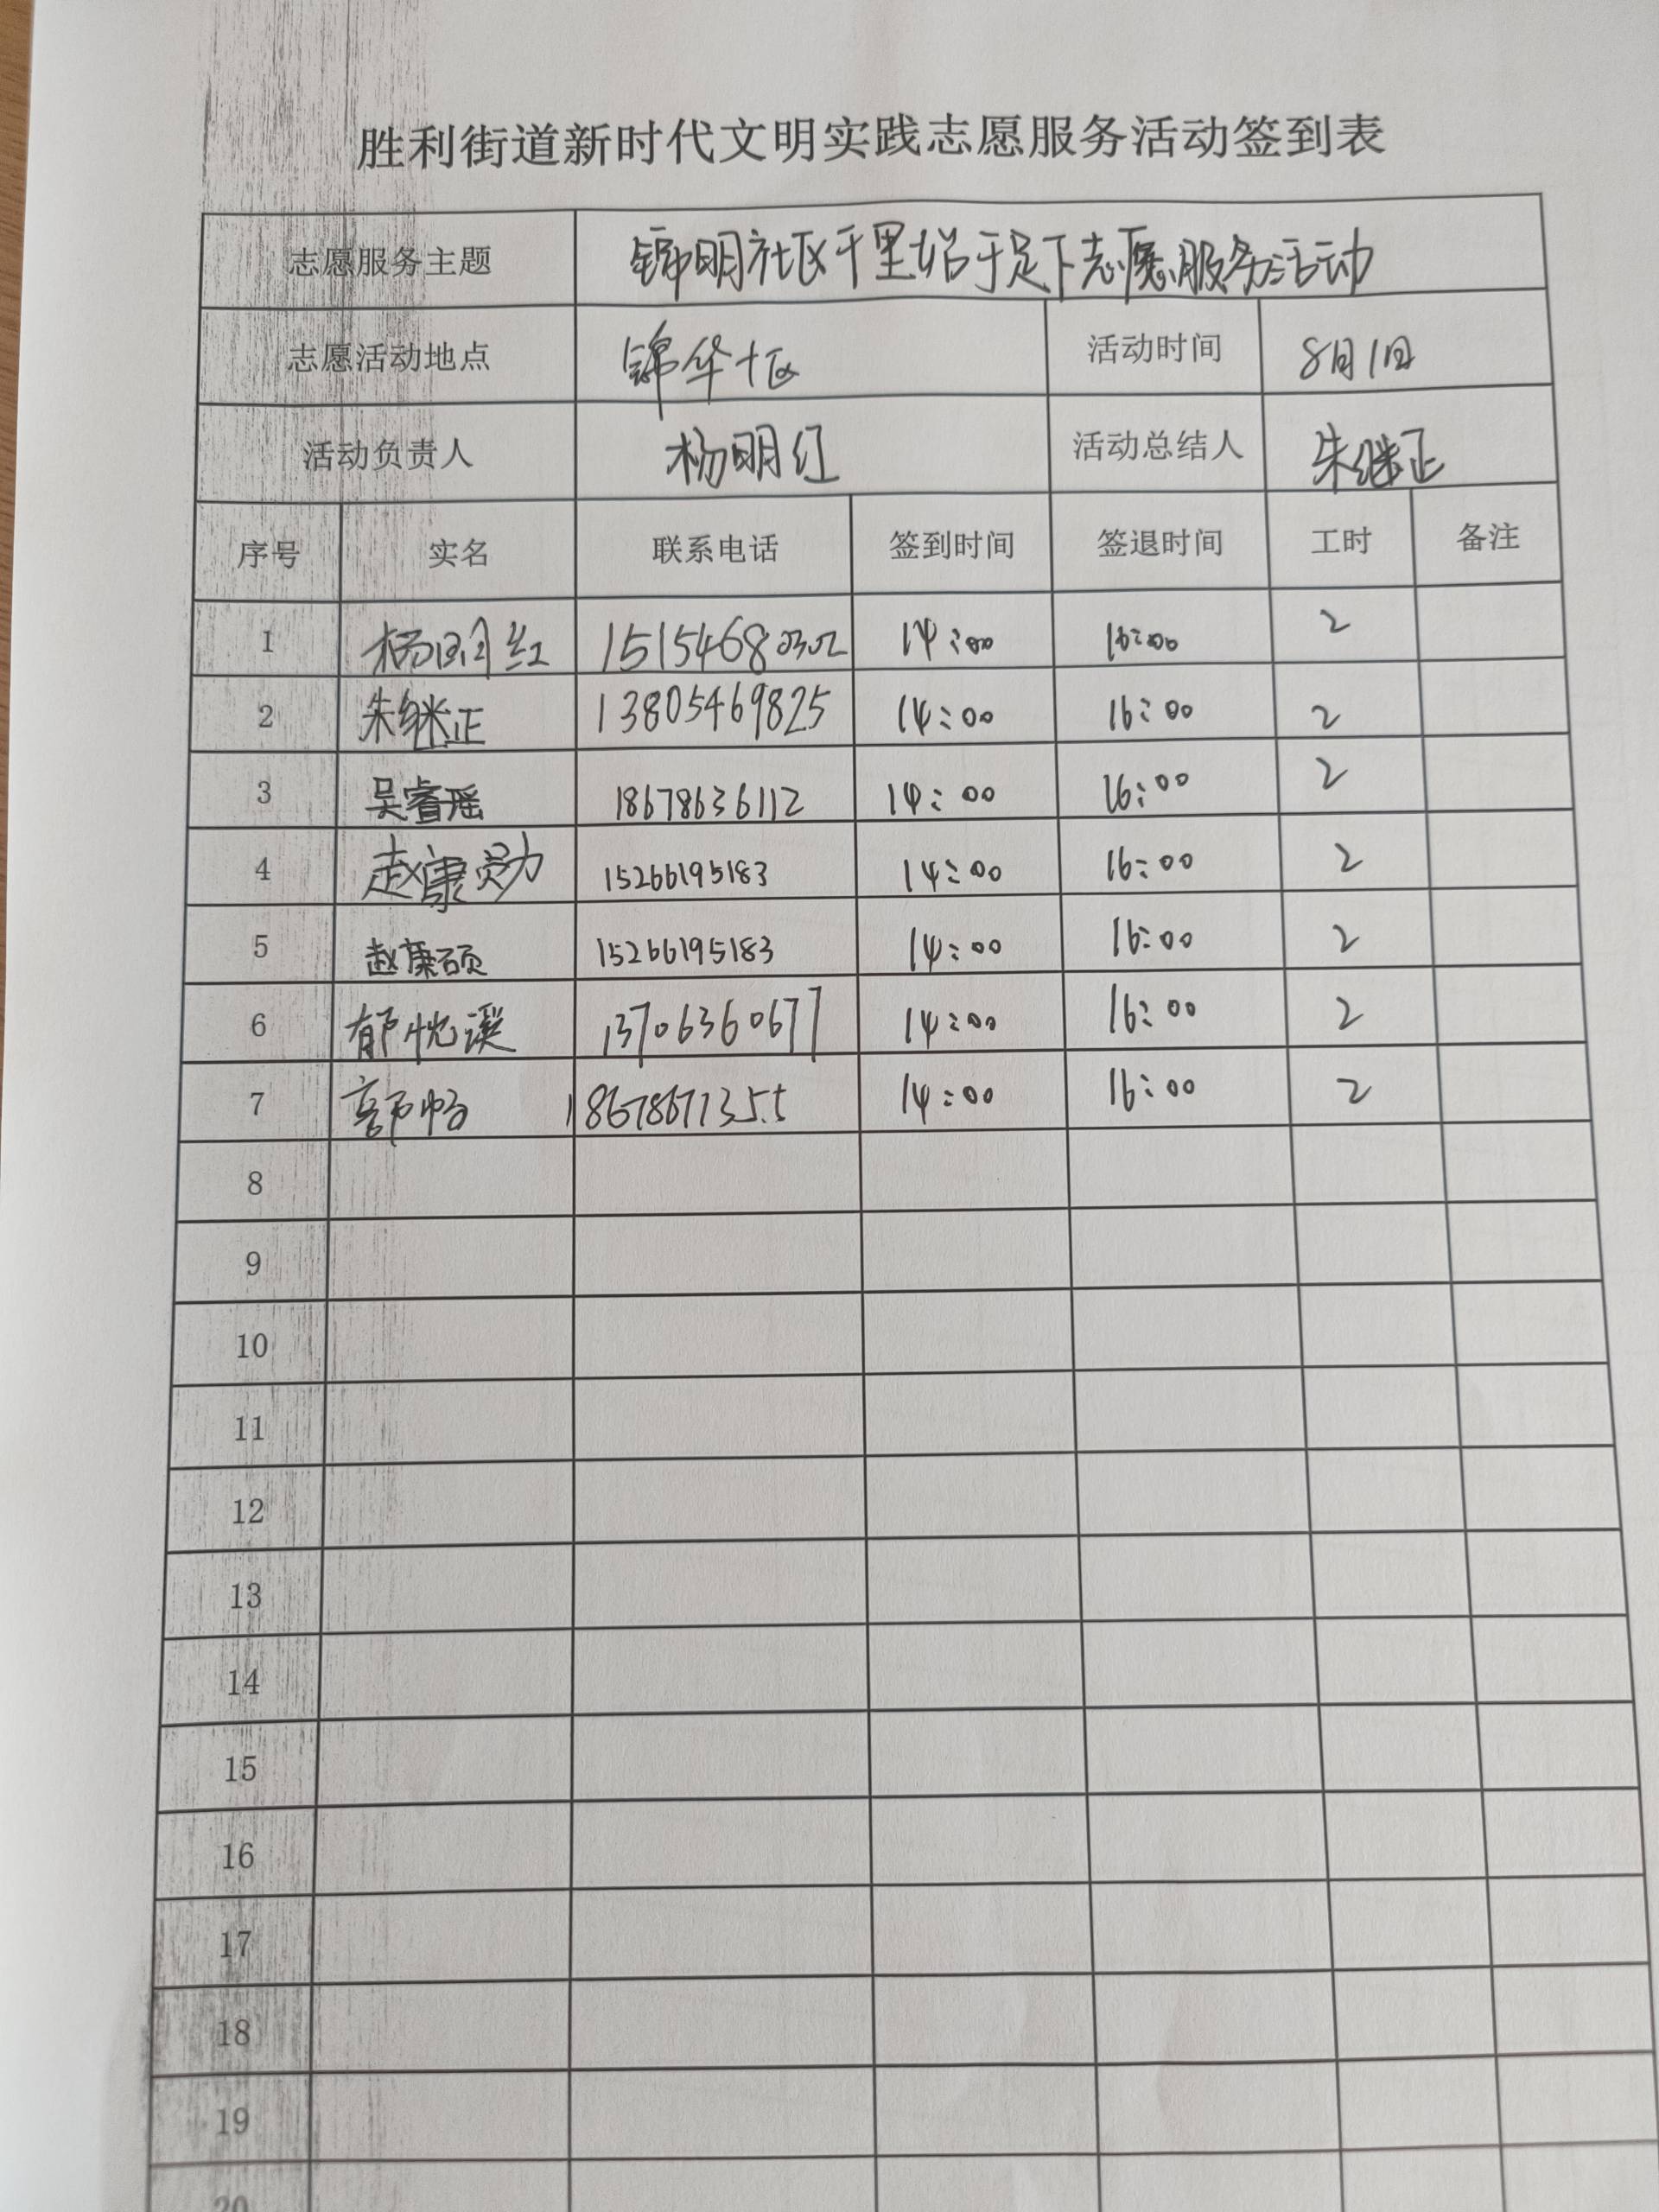 胜利街道新时代文明实践志愿服务活动签到表
志愿服务主题 锦明社区千里始于足下志愿服务活动
志愿活动地点 锦华十区 活动时间 8月1日
活动负责人 杨明红 活动总结人 朱继正
序号 实名 联系电话 签到时间 签退时间 工时 备注
1 杨明红 14:00 16:00 2
2 朱继正 13805469825 14:00 16:00 2
3 吴睿瑶 18678636112 14:00 16:00 2
4 赵康 15266195183 14:00 16:00 2
5 赵康硕 15266195183 14:00 16:00 2
6 郁忱溪 13706360677 14:00 16:00 2
7 郭畅 18678671355 14:00 16:00 2
8
9
10
11
12
13
14
15
16
17
18
19
20